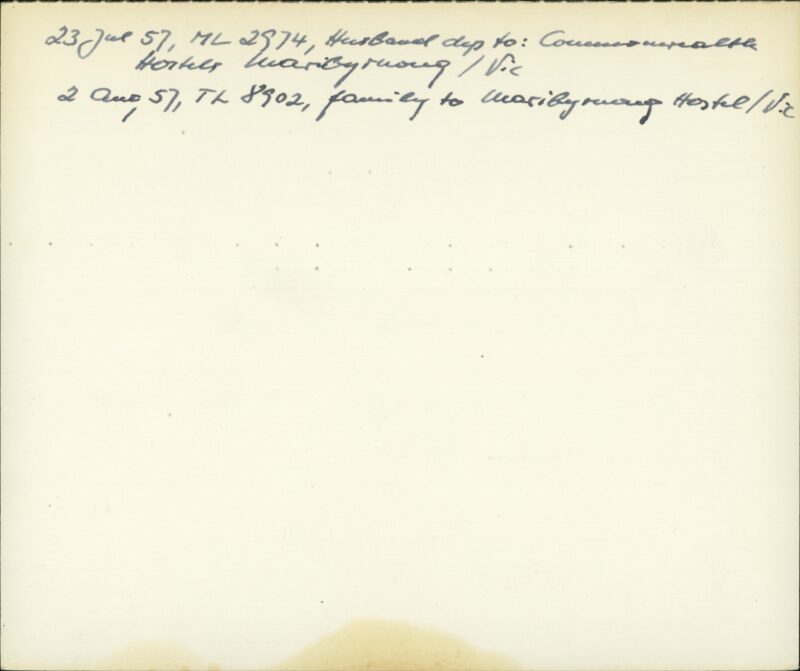 23 Jul 57, ML 2974, Husband dep to: Commonwealth
Hostels Maribyrnong / Vic
2 Aug 57, TL 8902, family to Maribyrnong Hostel / Vic